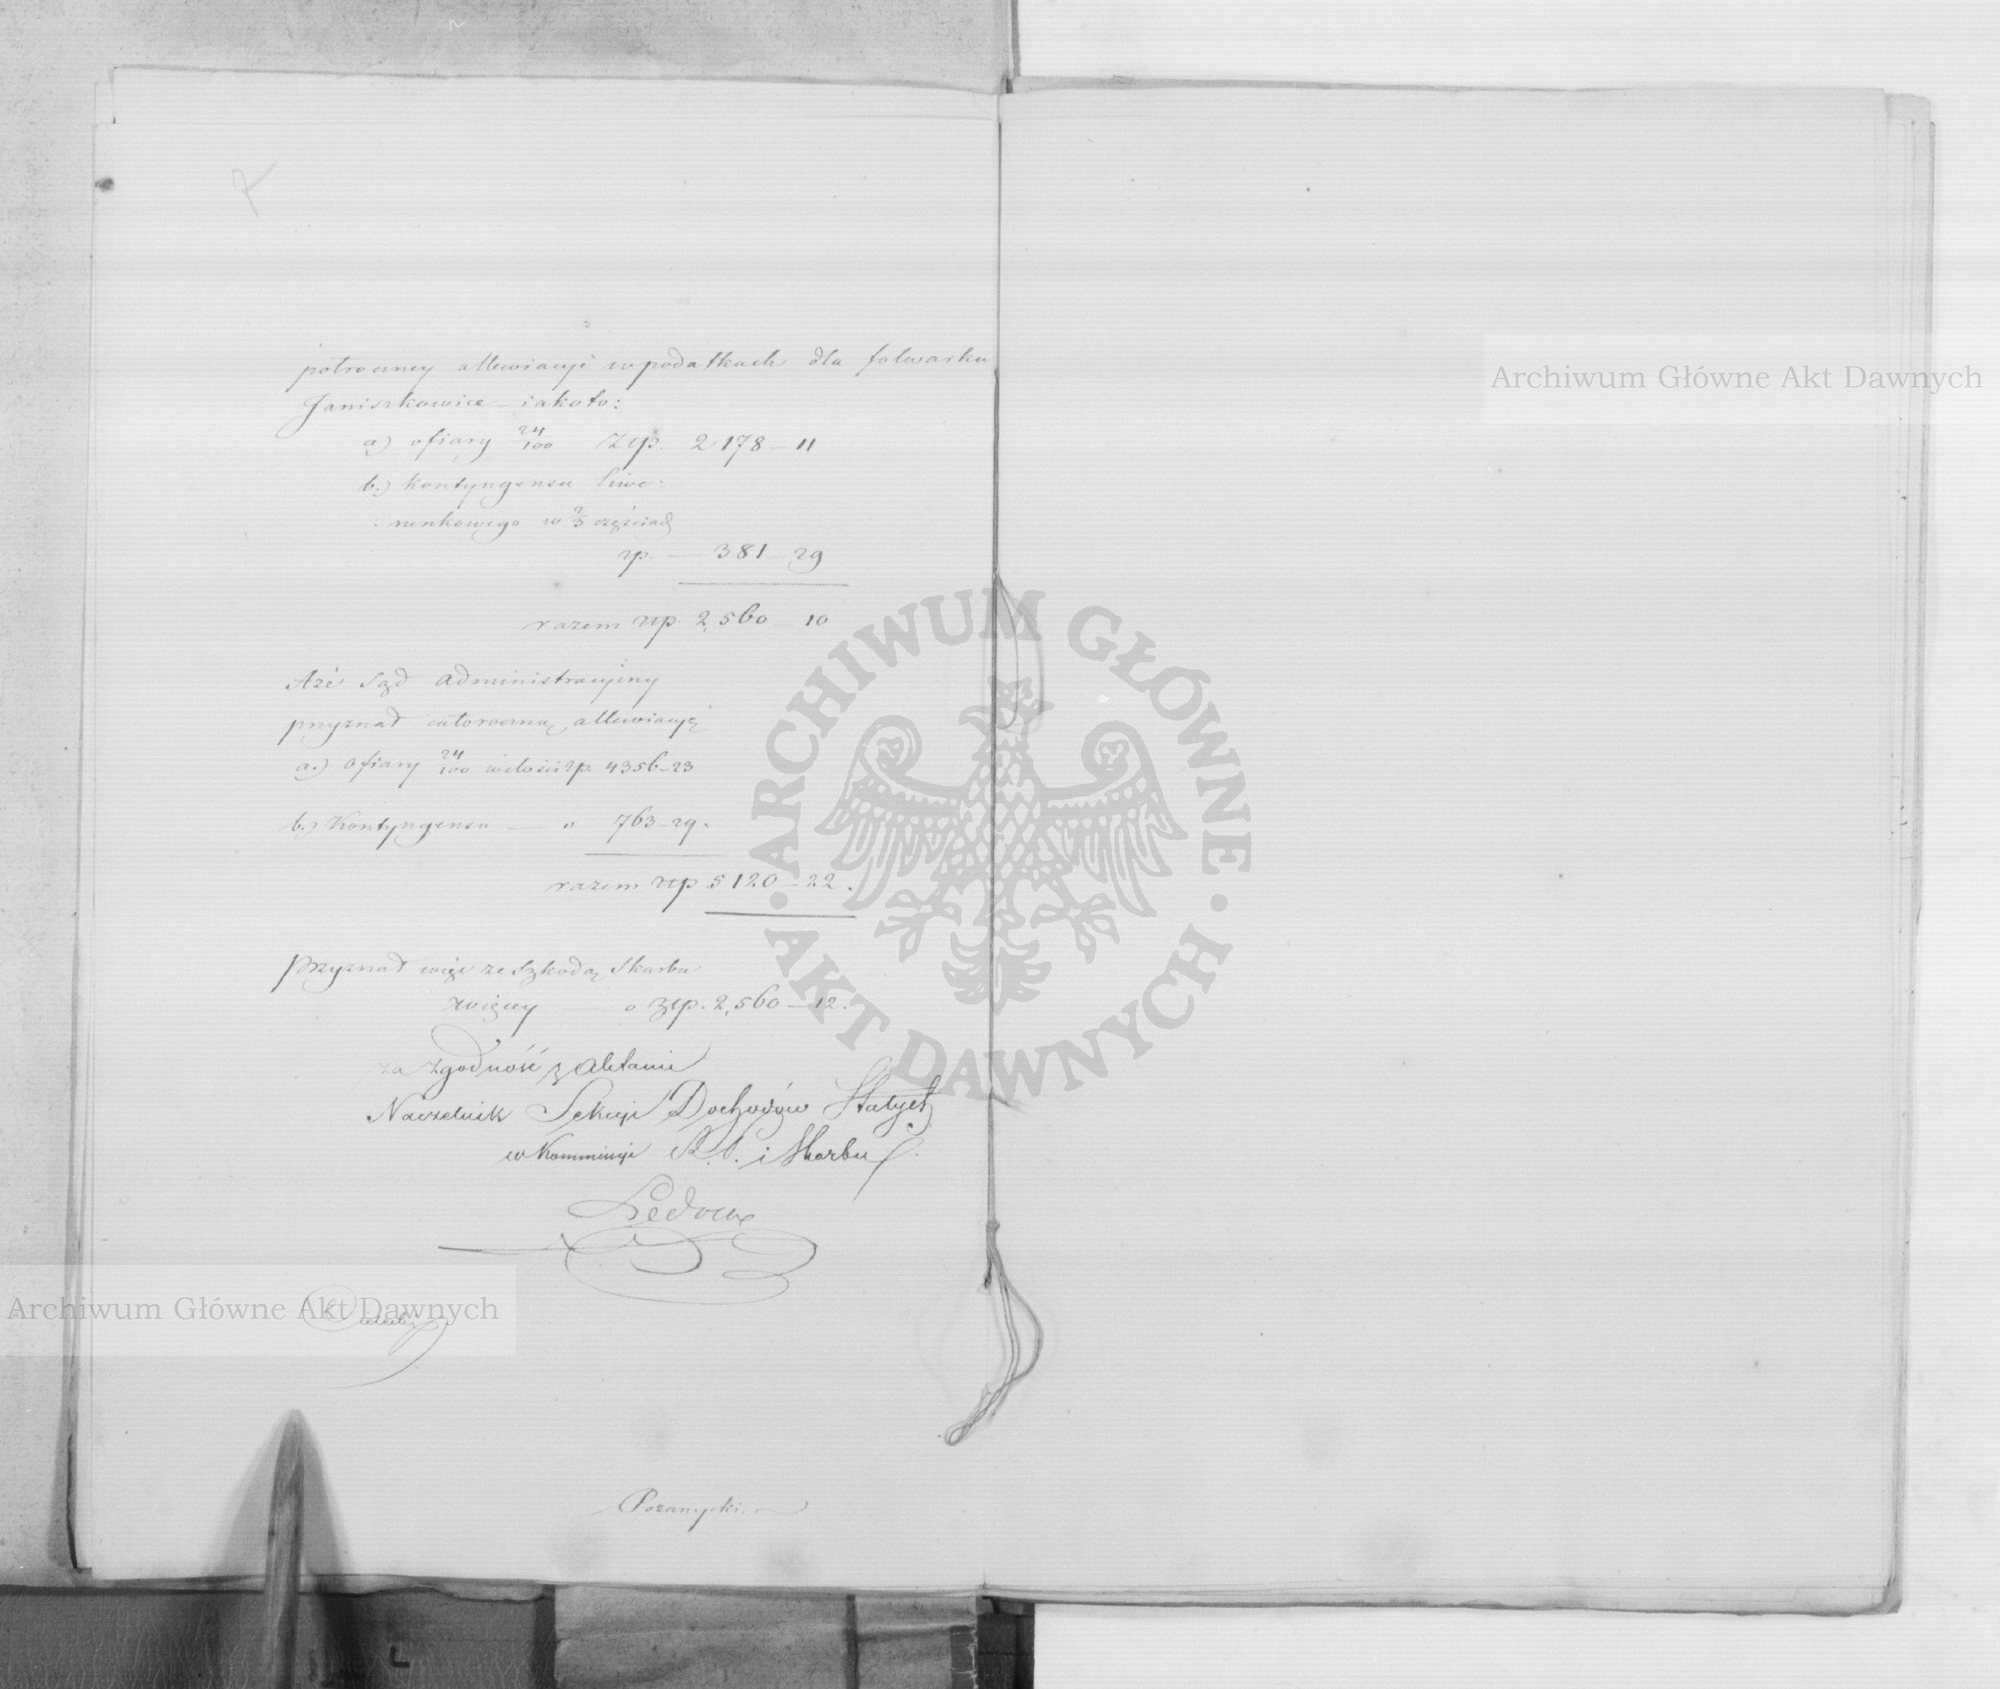 półroczney allewiacyi w podatkach dla folwarku
Janiszkowice iakoto:
a) ofiary 24/100 Złp. 2178-11
b.) Kontyngensu liwe:
runkowego w 2/3 częściach
zp. — 381-29
razem złp. 2,560-10
Aże Sąd administracyiny
przyznał całoroczną allewiacyę
a.) Ofiary 24/100 w ilości zp. 4356-23
b.) Kontyngensu — " 763-29.
razem złp 5120-22.
Przyznał więc ze szkodą Skarbu
więcey — o złp. 2,560-12.
za zgodność z Aktami
Naczelnik Sekcyi Dochodów Stałych
w Kommissyi R. P. i Skarbu
Archiwum Główne Akt Dawnych
Archiwum Główne Akt Dawnych
· ARCHIWUM GŁÓWNE · AKT DAWNYCH